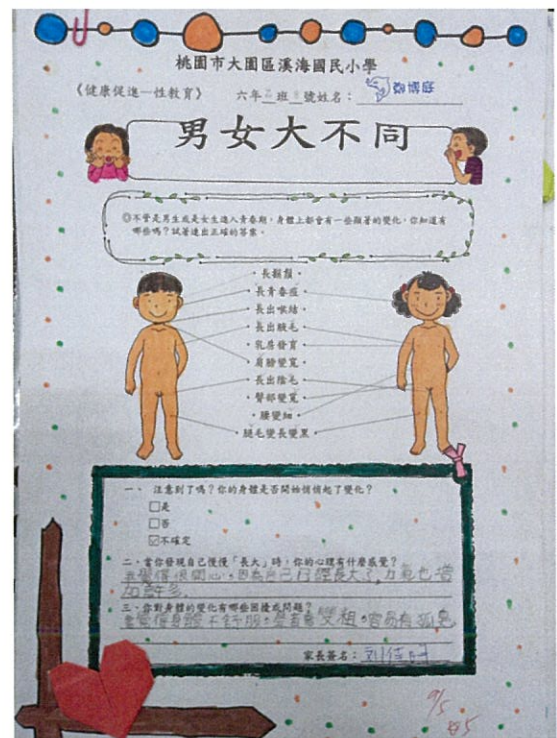 桃園市大園區溪海國民小學
《健康促進—性教育》 六年 班 號姓名：
男女大不同
◎不管是男生或是女生進入青春期，身體上都會有一些顯著的變化，你知道有
哪些嗎？試著連出正確的答案。
・長鬍鬚・
・長青春痘・
・長出喉結・
・長出腋毛・
・乳房發育・
・肩膀變寬・
・長出陰毛・
・臀部變寬・
・腰變細・
・腿毛變長變黑・
一、 注意到了嗎？你的身體是否開始悄悄起了變化？
□是
□否
☑不確定
二、當你發現自己慢慢「長大」時，你的心裡有什麼感覺？
我覺得很開心，因為自己已經長大了，力氣也增
加許多。
三、你對身體的變化有哪些困擾或問題？
會覺得身體不舒服。聲音會變粗。容易有狐臭
家長簽名：
9/5